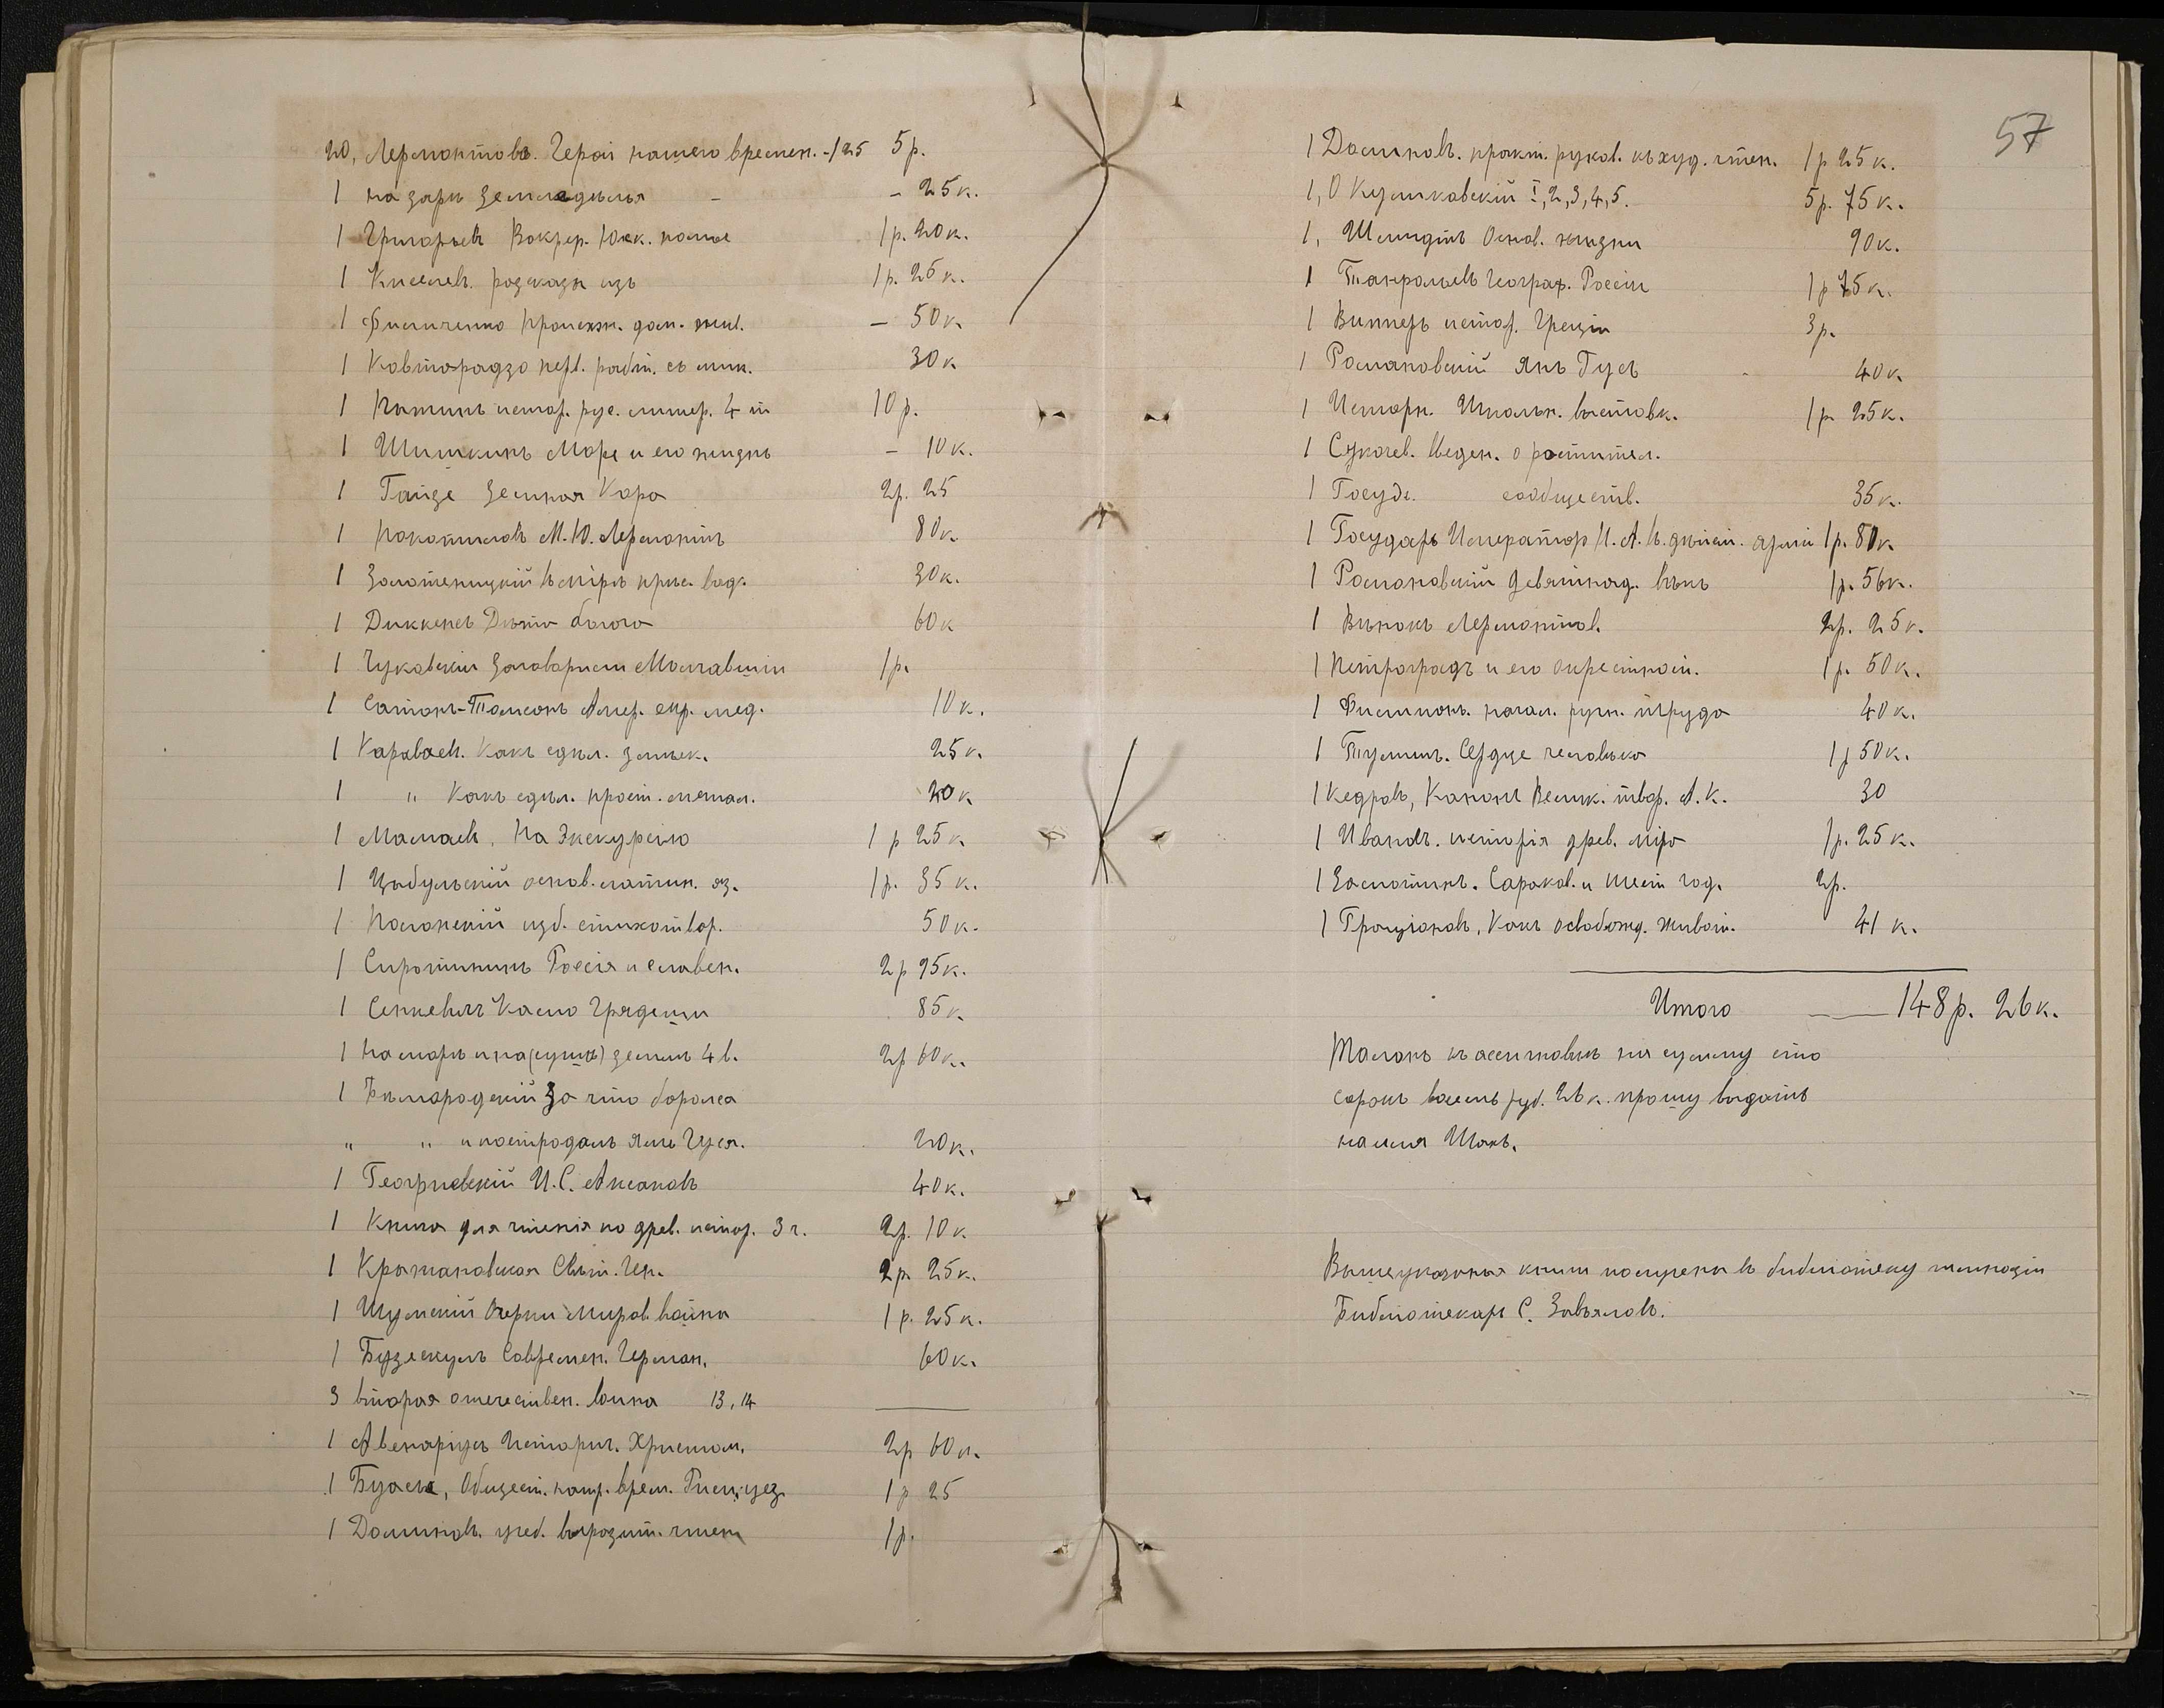 20, Лермонтова. Герой нашего времен. -/25 5 р.
1 На зарѣ земледѣлья - - 25 к.
1 Григорьевъ Вокруг. Юж. полюс 1 р. 20 к.
1 Киселевъ. разсказы изъ 1 р. 25 к.
1 Филипченко Происхж. дом. жив. - 50 к.
1 Кавтарадзе перв. работ. съ мик. 30 к
1 Пыпинъ истор. рус. литер. 4 т 10 р.
1 Шишкинъ Море и его жизнь - 10 к.
1 Гайде Земная Кора 2 р. 25
1 Покотиловъ М. Ю. Лермонтъ 80 к.
1 Золотницкій Въ мірѣ прѣс. вод. 30 к.
1 Диккенсъ Дѣти богача 60 к
1 Чуковскій Заговорили Молчавшіи 1 р.
1 Сэтонъ-Томсонъ Амер. сѣр. мед. 10 к.
1 Караваев. Какъ сдѣл. 25 к.
1 " Какъ сдѣл. прост. 20 к
1 Мамаевъ. На Экскурсію 1 р 25 к
1 Цыбульскій основ. латин. яз. 1 р. 35 к.
1 Полонскій изб. стихотвор. 50 к.
1 Сиротининъ Россія и славян. 2 р 25 к.
1 Сенкевичъ Камо Грядеши 85 к
1 На морѣ и на (сушѣ) землѣ 4 в. 2 р 60 к.
1 Бѣлгородскій За что боролся
" " и пострадалъ Янъ Гусъ. 20 к.
1 Георгиевскій И. С. Аксаковъ 40 к.
1 Книга для чтенія по древ. истор. 3 ч. 2 р. 10 к
1 Крыжановская Свѣт. Чех. 2 р. 25 к.
1 Шумскій Очерки Миров. война 1 р. 25 к.
1 Бузескулъ Современ. Герман. 60 к.
3 Вторая отечествен. воина 13, 14
1 Авенаріусъ Историч. Христом. 2 р 60 к.
1 Буасье, Общест. настр. врем. Римс. цез. 1 р 25
1 Долиновъ. учеб. выразит. чтен 1 р.
57
1 Долиновъ. практ. руков. къ худ. чтен. 1 р 25 к.
1, О Кулжковскій I, 2, 3, 4, 5. 5 р. 75 к.
1, Шмидтъ Основ. жизни 90 к.
1 Танфильевъ Географ. Россіи 1 р 75 к.
1 Випперъ истор. Греціи 3 р.
1 Романовскій Янъ Гусъ 40 к
1 Истори. Школьн. выставк. 1 р. 25 к.
1 Сукачев. Введен. о растител.
1 Госуд. сообществ. 35 к.
1 Государь Императоръ Н. А. въ дѣйст. арміи 1 р. 80 к
1 Романовскій Девятнад. вѣкъ 1 р. 56 к.
1 Вѣнокъ Лермонтов. 2 р. 25 к.
1 Петроградъ и его окрестност. 1 р. 50 к.
1 Филиппов. начал. ручн. труда 40 к.
1 Тумимъ. Сердце человѣка 1 р 50 к.
1 Кедровъ, Канонъ Велик. твор. А. К. 30
1 Ивановъ. исторія древ. міра 1 р. 25 к.
1 Замотинъ. Сороков. и шест. год. 2 р.
1 Граціановъ, Какъ освобожд. живот. 41 к.
Итого —— 148 р. 26 к.
Талонъ къ ассигновкѣ на сумму сто
сорокъ восемь руб. 26 к. прошу выдать
на имя Шокъ.
Вышеуказаныя книги получены въ библиотеку гимназіи
Библиотекарь С. Завьяловъ.